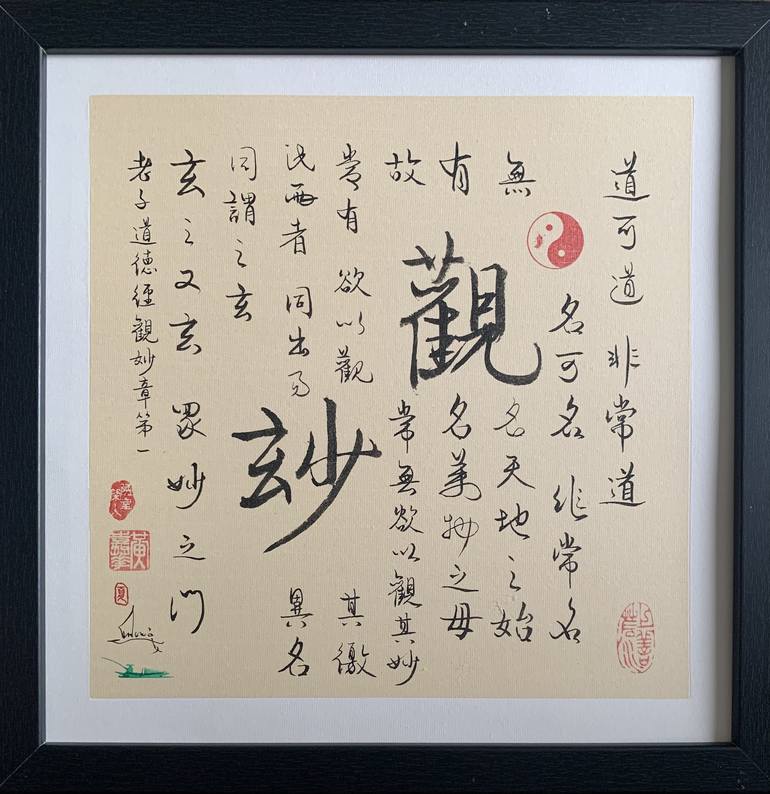 道可道 非常道
名可名 非常名
無 名天地之始
有 名萬物之母
故 常無欲以觀其妙
常有 欲以觀 其徼
此兩者 同出而 異名
同謂之玄
玄之又玄 眾妙之門
老子道德經觀妙章第一
觀
玅
上善若水